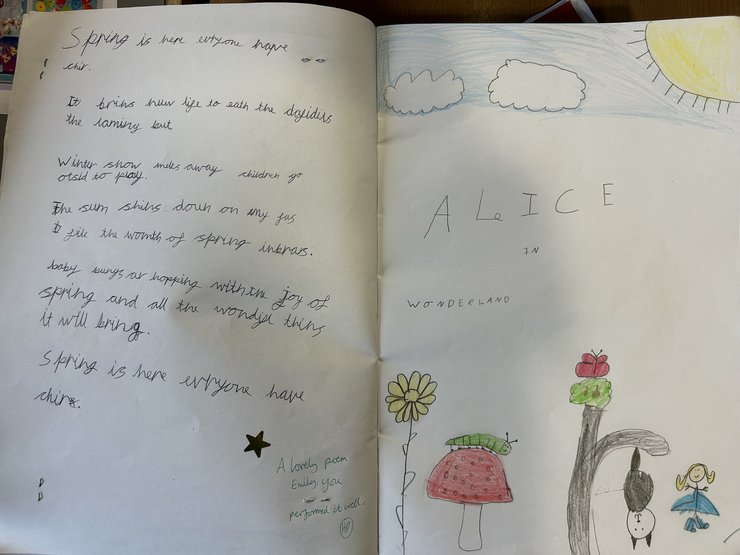 Spring is here evryone have
chir.
It brins new life to eath the dafidils
the laming but
Winter show melts away children go
otsid to play.
The sum shins doun on my fas
I file the womth of spring inbras.
baby bunys ar hopping with the joy of
spring and all the wondful thins
it will bring.
Spring is here evryone have
chir.
A lovely poem
Emily. You
performed it well.
HP
ALICE
IN
WONDERLAND